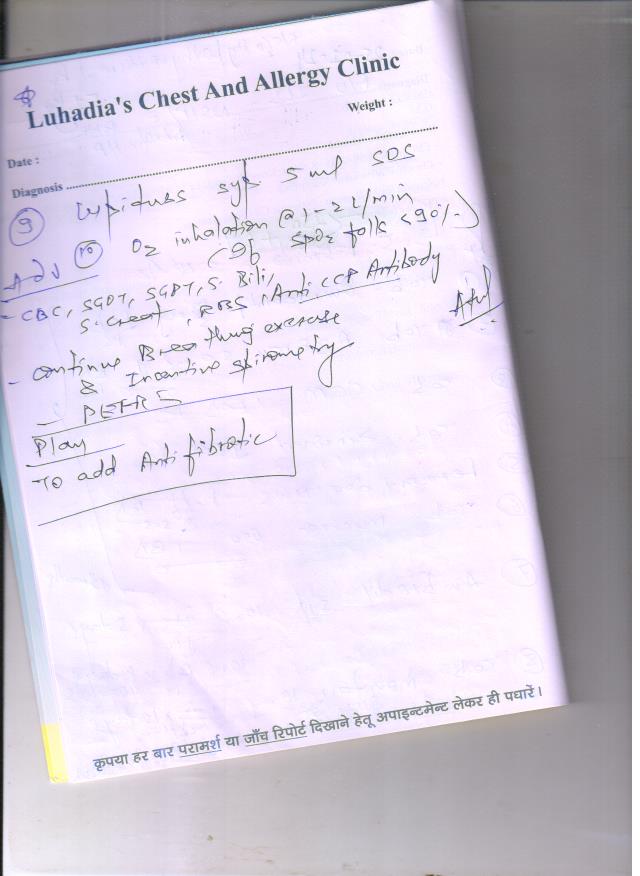 Luhadia's Chest And Allergy Clinic
Weight :
Date :
Diagnosis
9 syp 5 ml SOS
Adv 10 O2 inhalation @ 1-2 L/min
(If SpO2 falls <90%)
- CBC, SGOT, SGPT, S. Bili,
S. Creat, RBS, Anti CCP Antibody
- continue Breathing exercise
& Incentive spirometry
- PEFR
Plan
To add Antifibrotic
कृपया हर बार परामर्श या जाँच रिपोर्ट दिखाने हेतू अपाइन्टमेन्ट लेकर ही पधारें।